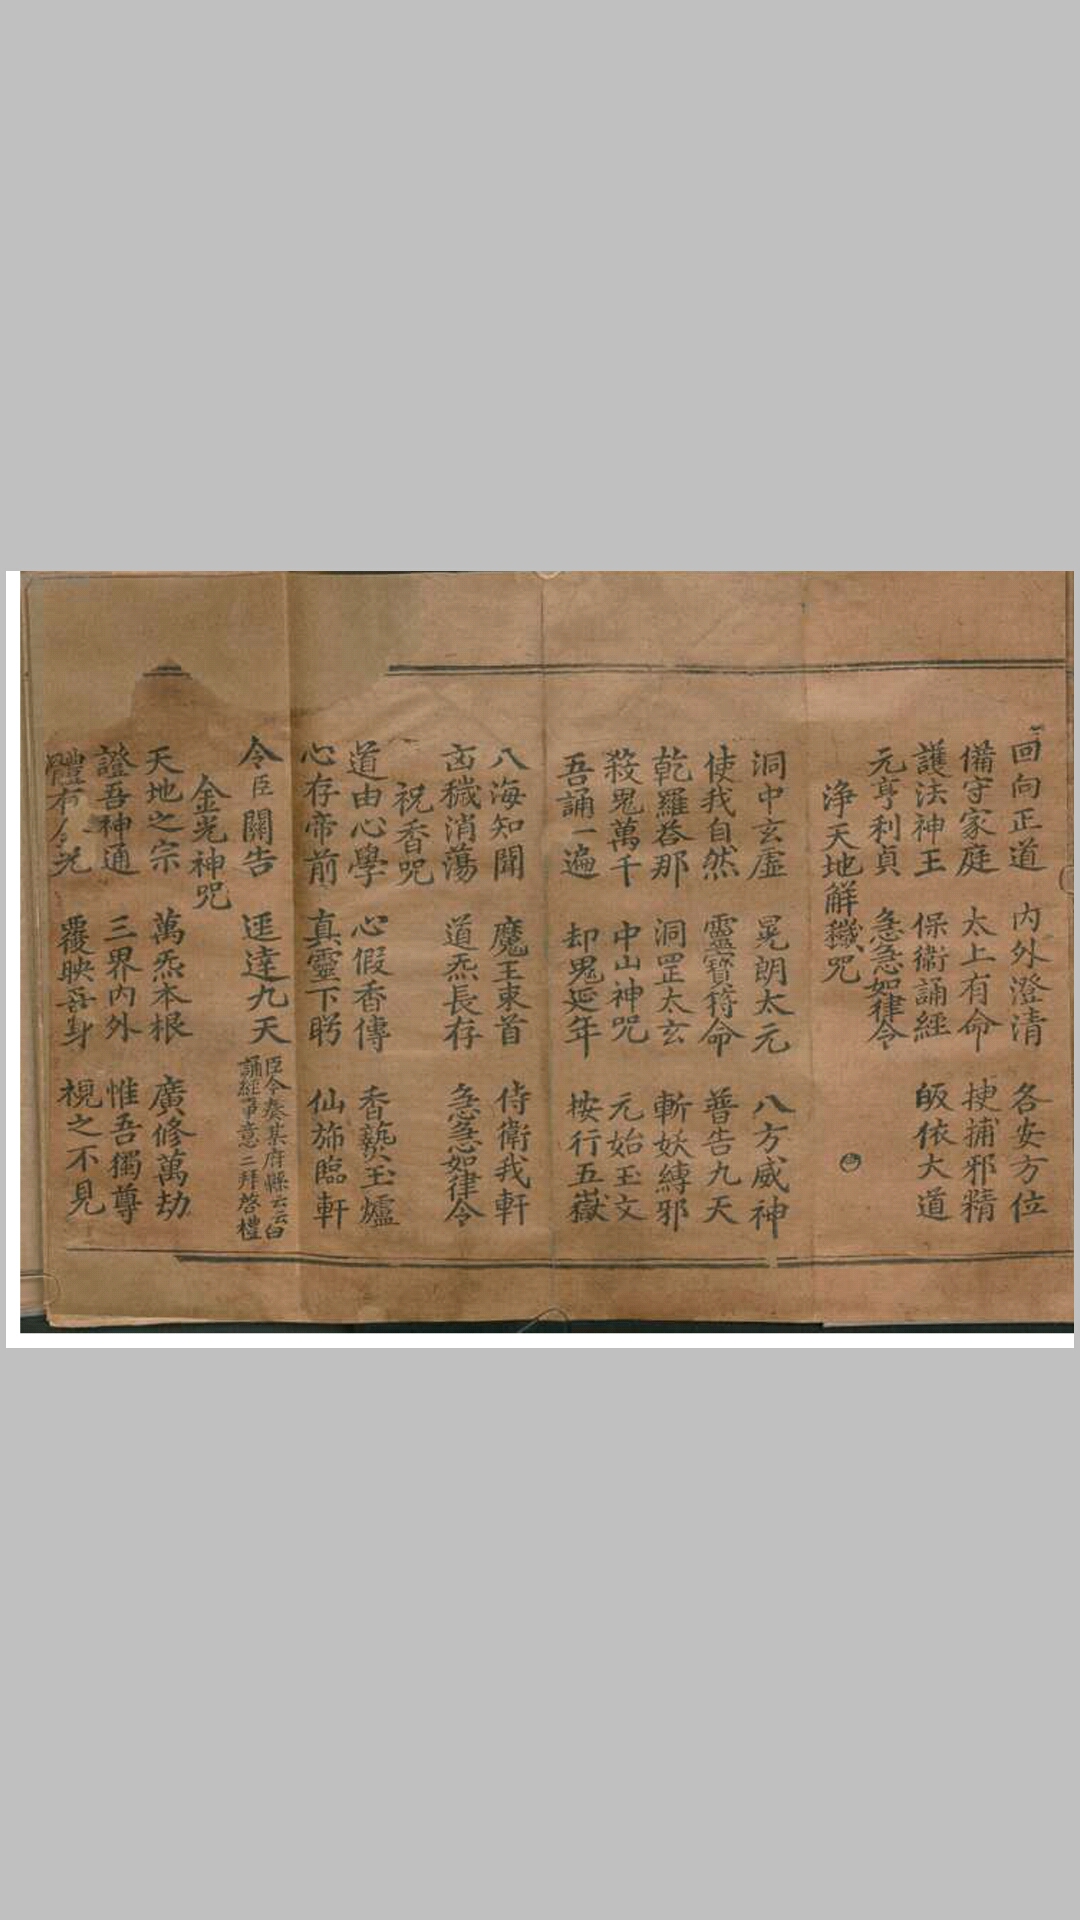 回向正道 內外澄清 各安方位
備守家庭 太上有命 捜捕邪精
護法神王 保衛誦經 皈依大道
元亨利貞 急急如律令
淨天地解穢咒
洞中玄虛 晃朗太元 八方威神
使我自然 靈寶符命 普告九天
乾羅荅那 洞罡太玄 斬妖縛邪
殺鬼萬千 中山神咒 元始玉文
吾誦一遍 却鬼延年 按行五嶽
八海知聞 魔王束首 侍衛我軒
凶穢消蕩 道炁長存 急急如律令
祝香咒
道由心學 心假香傳 香爇玉爐
心存帝前 真靈下盻 仙旆臨軒
令臣關告 逕達九天 臣今奏某府縣云云白
誦經事意三拜啓禮
金光神咒
天地之宗 萬炁本根 廣修萬劫
證吾神通 三界內外 惟吾獨尊
體有金光 覆映吾身 視之不見